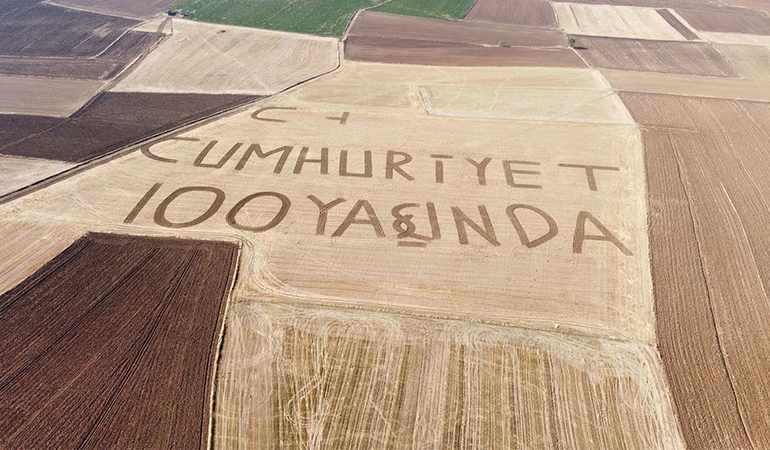 CUMHURİYET
100 YAŞINDA